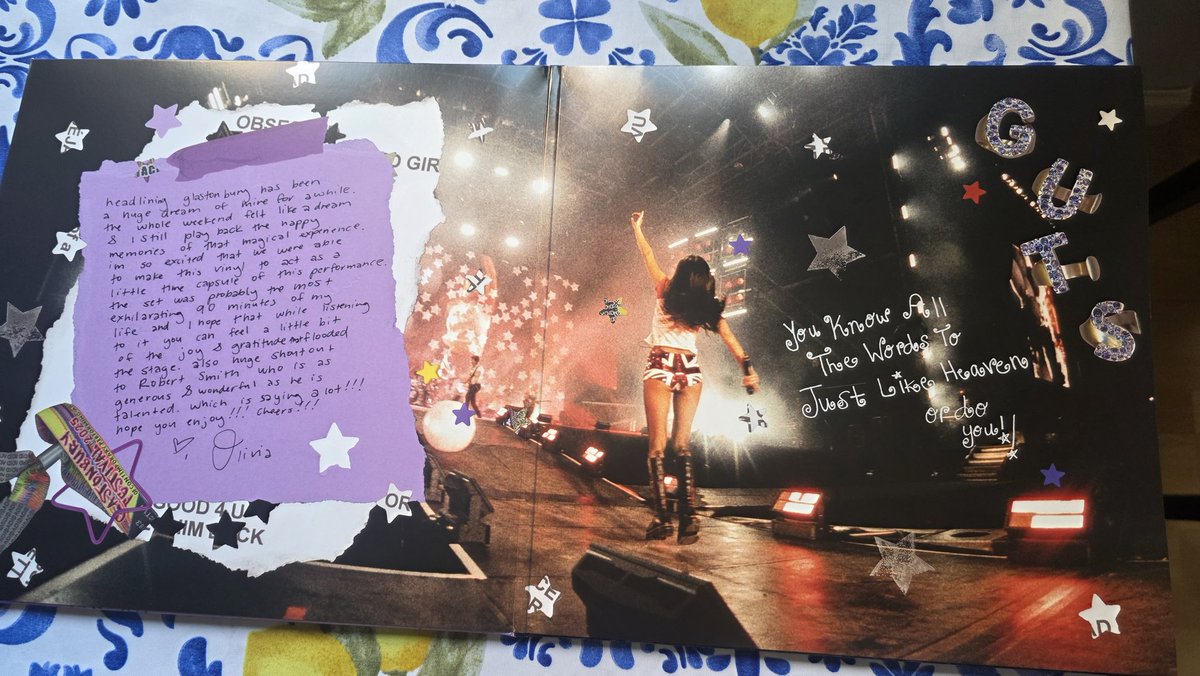 OBSE
O GIR
headlining glastonbury has been
a huge dream of mine for awhile.
the whole weekend felt like a dream
& i still play back the happy
memories of that magical experience.
im so excited that we were able
to make this vinyl to act as a
little time capsule of this performance.
the set was probably the most
exhilarating 90 minutes of my
life and i hope that while listening
to it you can feel a little bit
of the joy & gratitude that flooded
the stage. also huge shoutout
to Robert Smith who is as
generous & wonderful as he is
talented. which is saying a lot!!!
hope you enjoy!!! cheers!!!
Olivia
GLASTONBURY
FESTIVAL 2025
OR
GOOD 4 U
HIM BACK
GUTS
You Know All
The Words To
Just Like Heaven
or do
you!